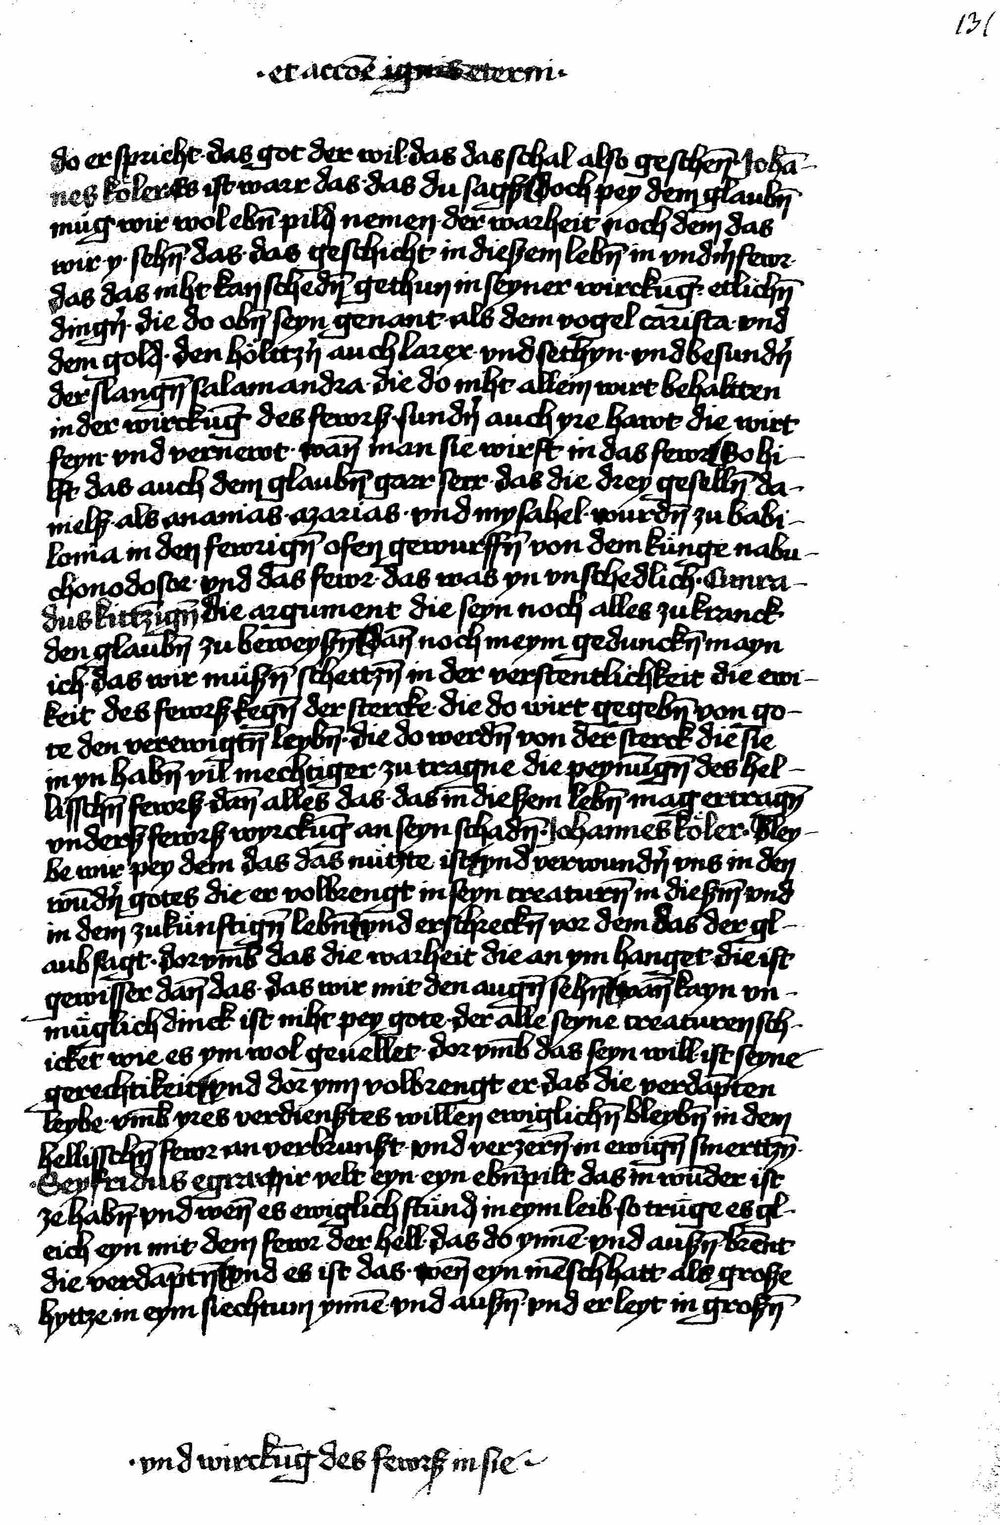 131
·et accõe ignis eterni·
do er spricht·das got der wil·das das schal also geschen̄·Johā-
nes köler·Es ist warr das·das du sagst Doch pey dem glaubn̄
mug wir wol ebn̄ pild nemen·der warheit noch dem das
wir·y·sehn̄·das·das geschicht·in dießem lebn̄·in vndn̄ fewr·
das das niht kan schedn̄ gethun in seyner wirckūg·etlichn̄
dingn̄·die do obn̄ seyn genant·als dem vogel carista·vnd
dem gold·den hölttzn̄ auch larex·vnd sethyn·vnd besundn̄
der slangn̄ salamandra·die do niht allein wirt behaltten
in der wirckūg des fewrß·sundn̄ auch yre hawt die wirt
feyn·vnd vernewt·wan̄ man sie wirft in das fewr So hi-
lft das auch dem glaubn̄ garr serr·das die drey geselln̄ da-
nielß·als ananias·azarias·vnd mysahel·wurdn̄ zu babi-
lonia in den fewrign̄ ofen gewurffn̄ von dem künge nabu-
chonodosor·vnd das fewr·das was yn vnschedlich·Cunra-
dus kittzīgn̄ die argument die seyn noch alles zu kranck
den glaubn̄ zu beweysn̄ Dan̄ noch meym gedunckn̄ mayn
ich·das wir müßn̄ schettzn̄ in der verstentlichkeit die ewi-
keit des fewrß·kegn̄ der stercke·die do wirt gegebn̄ von go-
te den verewigtn̄ leybn̄·die do werdn̄ von der sterck die sie
in yn habn̄ vil mechtiger zu tragne die peynūgn̄ des hel-
lisschn̄ fewrß·dan̄ alles das·das in dießem lebn̄ mag ertragn̄
vnderß fewrß wyrckūg an seyn schadn̄·Johannes köler·Bley-
be wir pey dem das das nützte ist vnd verwundn̄ vns in den
wūdn̄ gotes die er volbrengt in seyn creaturn̄ in dießm̄ vnd
in dem zukünftign̄ lebn̄ vnd erschreckn̄ vor dem das der gl-
aub sagt·dor vmb das die warheit die an ym hanget·die ist
gewisser dan̄ das·das wir mit den augn̄ sehn̄ wan̄ kayn vn-
müglich dinck ist niht pey gote·der alle seyne creaturen sch-
icket wie es ym wol geuellet·dor vmb das seyn will·ist seyne
gerechtikeit vnd dor ynn volbrengt er·das die verdāpten
leybe·vmb yres verdienßtes willen ewiglichn̄ bleybn̄ in dem
hellisschn̄ fewr·an verbrunst·vnd verzern̄ in ewign̄ smerttzn̄·
·Seyfridus egrer mir velt eyn·eyn ebn̄pilt das in wūder ist
ze habn̄·vnd wen̄ es ewiglich stünd in eym leib·so trüge es gl-
eich eyn mit dem fewr der hell·das do ynnē·vnd außn̄ brēnt
die verdāptn̄ vnd es ist das·wen̄ eyn mēsch hatt als große
hyttze in eym siechtum ynnē·vnd außn̄·vnd er leyt in großn̄
·vnd wirckūg des fewrß in sie·